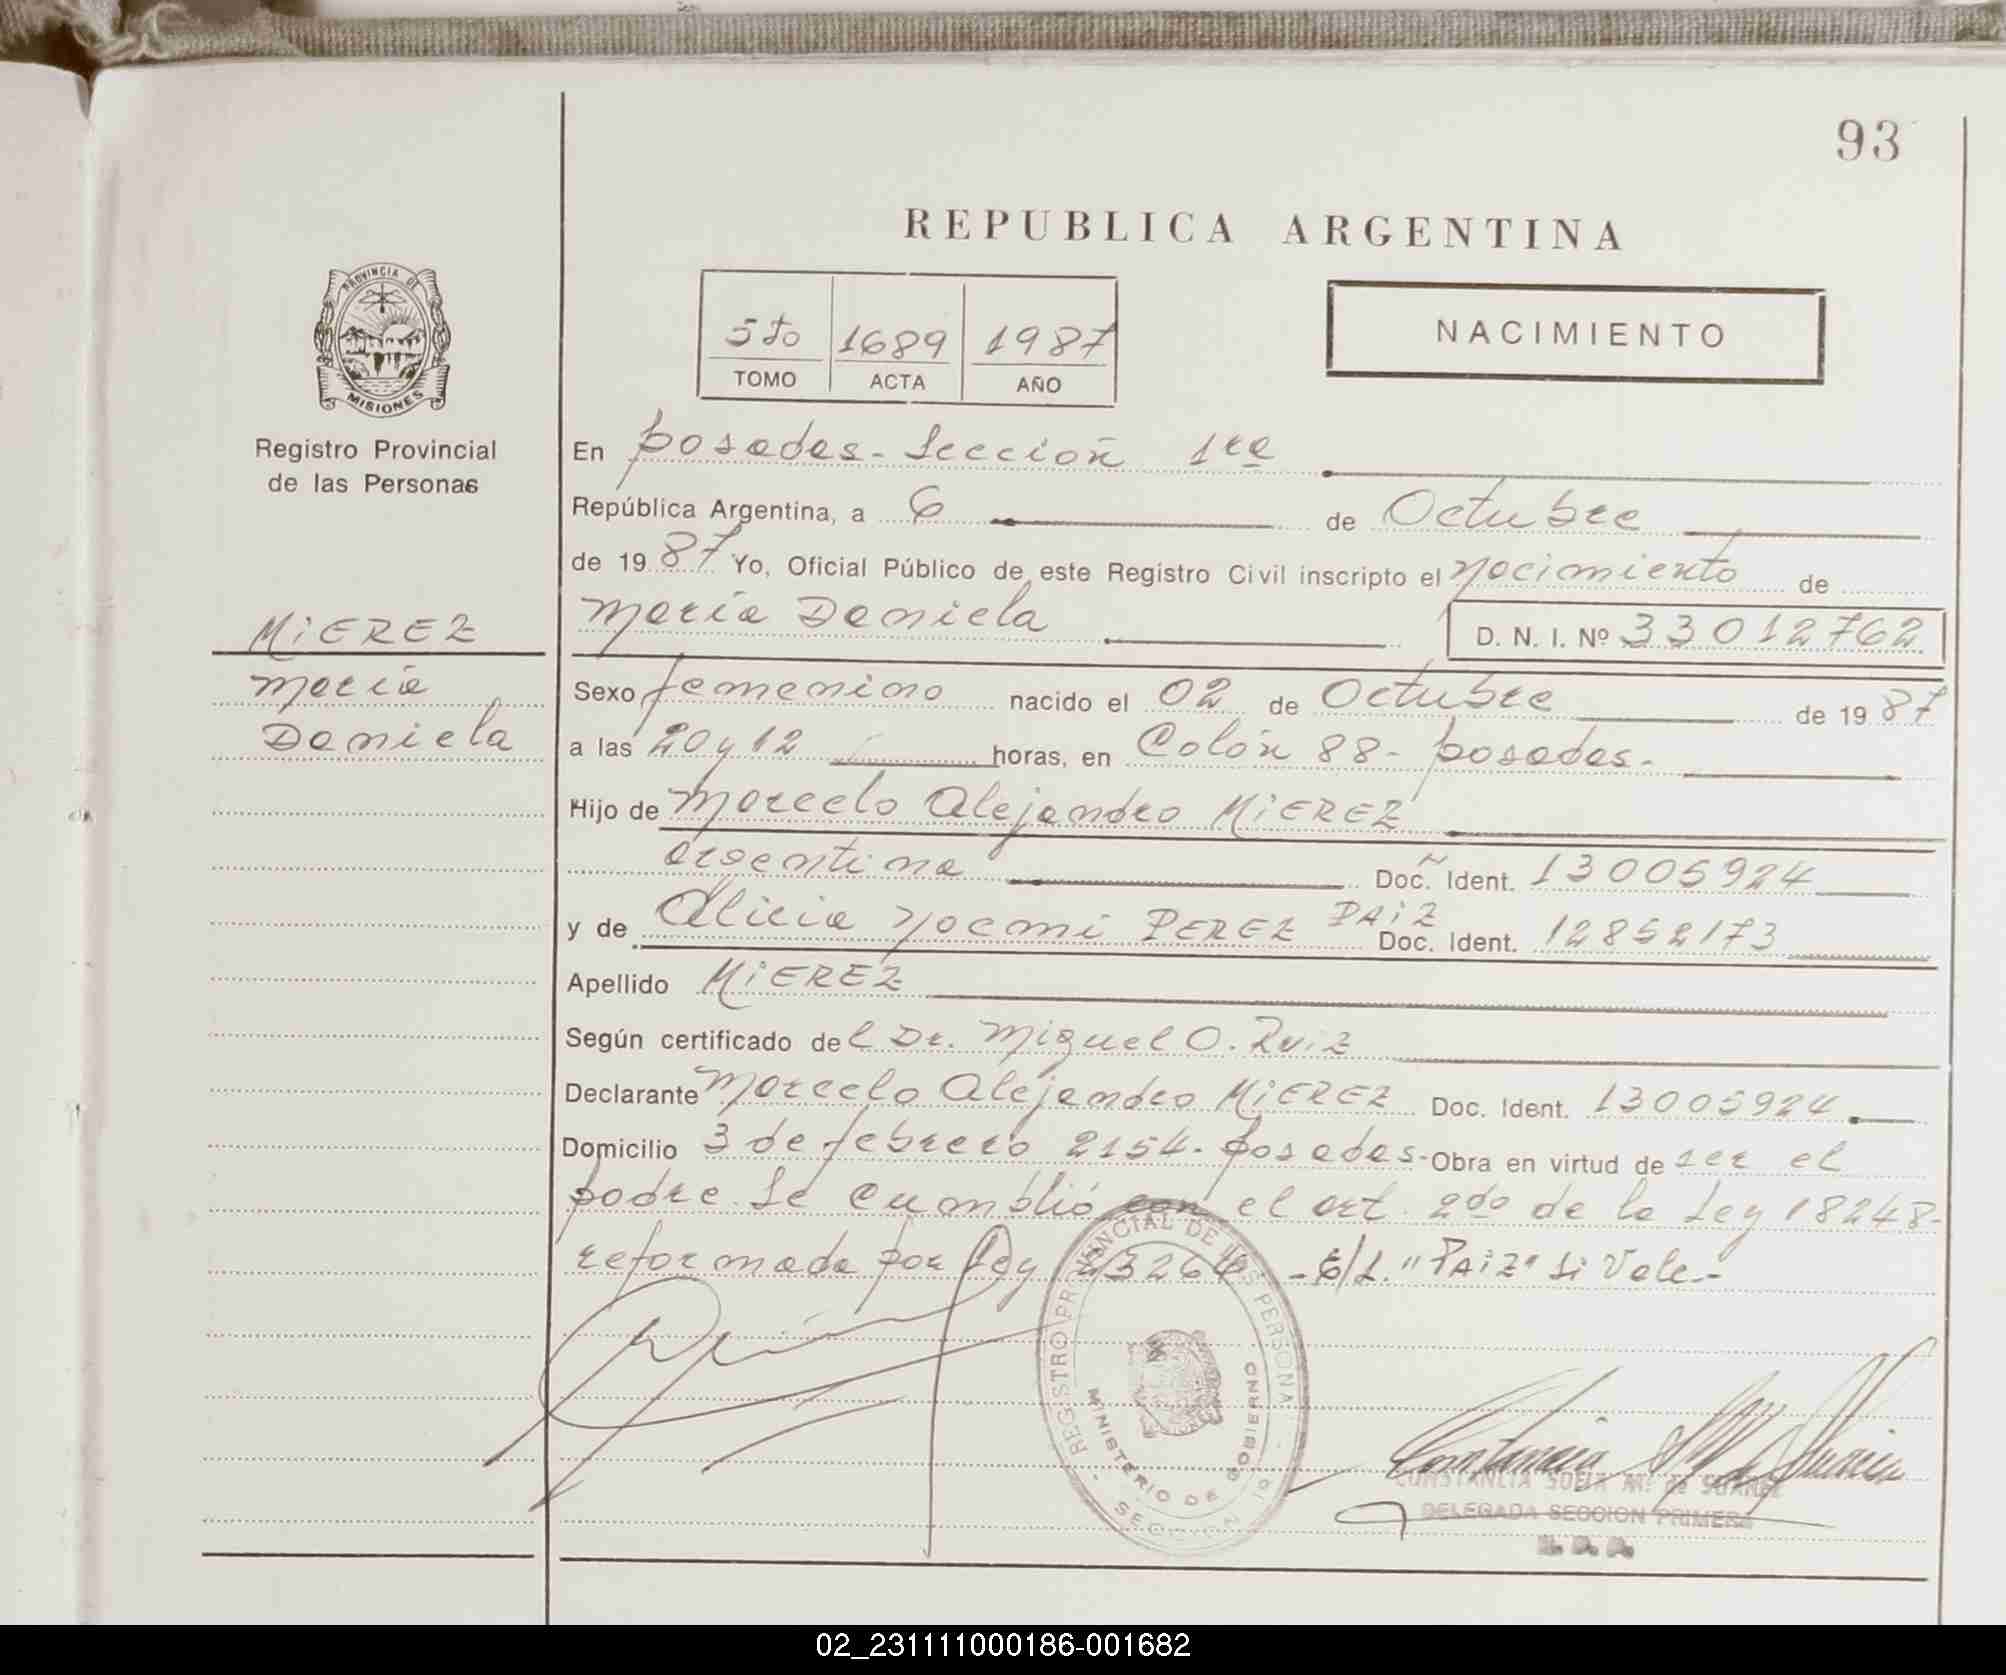 93
REPUBLICA ARGENTINA
PROVINCIA DE
MISIONES
Registro Provincial
de las Personas
5to 1689 1987
TOMO ACTA AÑO
NACIMIENTO
En Posadas - Sección 1ra
República Argentina, a 6 de Octubre
de 1987 Yo, Oficial Público de este Registro Civil inscripto el Nacimiento de
María Daniela D. N. I. Nº 33012762
MiEREZ
María
Daniela
Sexo femenino nacido el 02 de Octubre de 1987
a las 20 y 12 horas, en Colón 88 - Posadas.
Hijo de Marcelo Alejandro MiEREZ
argentina Doc. Ident. 13005924
y de Alicia Noemi PEREZ PAiZ Doc. Ident. 12852173
Apellido MiEREZ
Según certificado del Dr. Miguel O. Ruiz
Declarante Marcelo Alejandro MiEREZ Doc. Ident. 13005924
Domicilio 3 de febrero 2154 - Posadas - Obra en virtud de ser el
padre. Se cumplió con el art. 2do de la Ley 18248-
reformada por Ley 23264 - E/L. "PAiZ" Si Vale.-
REGISTRO PROVINCIAL DE LAS PERSONAS
MINISTERIO DE GOBIERNO
SECCION
CONSTANCIA SOFIA Mª. de SUAREZ
DELEGADA SECCION PRIMERA
02_231111000186-001682